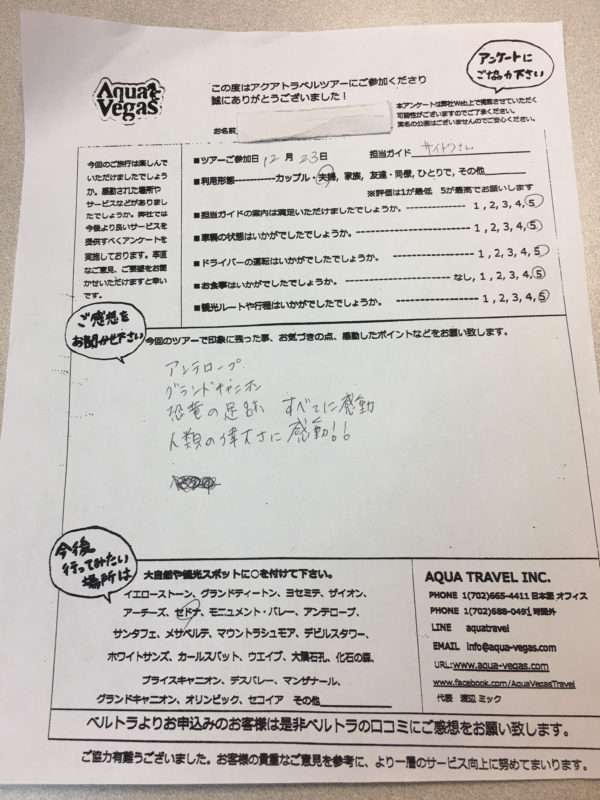 Aqua Vegas
この度はアクアトラベルツアーにご参加くださり
誠にありがとうございました！
アンケートにご協力下さい
お名前
本アンケートは弊社Web上で掲載させていただく
可能性がございますのでご了承ください。
実名の公表はございませんのでご安心ください。
今回のご旅行は楽しんで
いただけましたでしょう
か。感動された場所や
サービスなどがありまし
たでしょうか。弊社では
今後より良いサービスを
提供すべくアンケートを
実施しております。率直
なご意見、ご要望をお聞
かせいただけますと幸い
です。
■ツアーご参加日 12月 23日 担当ガイド サイトウさん
■利用形態------------カップル・夫婦，家族，友達・同僚，ひとりで，その他
※評価は1が最低 5が最高でお願いします
■担当ガイドの案内は満足いただけましたでしょうか。---------------- 1，2，3，4，5
■車輌の状態はいかがでしたでしょうか。------------------------- 1，2，3，4，5
■ドライバーの運転はいかがでしたでしょうか。------------------- 1，2，3，4，5
■お食事はいかがでしたでしょうか。---------------------- なし，1，2，3，4，5
■観光ルートや行程はいかがでしたでしょうか。------------------ 1，2，3，4，5
ご感想をお聞かせ下さい
今回のツアーで印象に残った事、お気づきの点、感動したポイントなどをお願い致します。
アンテロープ
グランドキャニオン
恐竜の足跡 すべてに感動
人類の偉大さに感動!!
今後行ってみたい場所は
大自然や観光スポットに○を付けて下さい。
イエローストーン、グランドティートン、ヨセミテ、ザイオン、
アーチーズ、セドナ、モニュメント・バレー、アンテロープ、
サンタフェ、メサベルデ、マウントラシュモア、デビルスタワー、
ホワイトサンズ、カールスバット、ウエイブ、大隕石孔、化石の森、
ブライスキャニオン、デスバレー、マンザナール、
グランドキャニオン、オリンピック、セコイア その他
AQUA TRAVEL INC.
PHONE 1(702)665-4411 日本語 オフィス
PHONE 1(702)688-0491 時間外
LINE aquatravel
EMAIL info@aqua-vegas.com
URL:www.aqua-vegas.com
www.facebook.com/AquaVegasTravel
代表 渡辺 ミック
ベルトラよりお申込みのお客様は是非ベルトラの口コミにご感想をお願い致します。
ご協力有難うございました。お客様の貴重なご意見を参考に、より一層のサービス向上に努めてまいります。